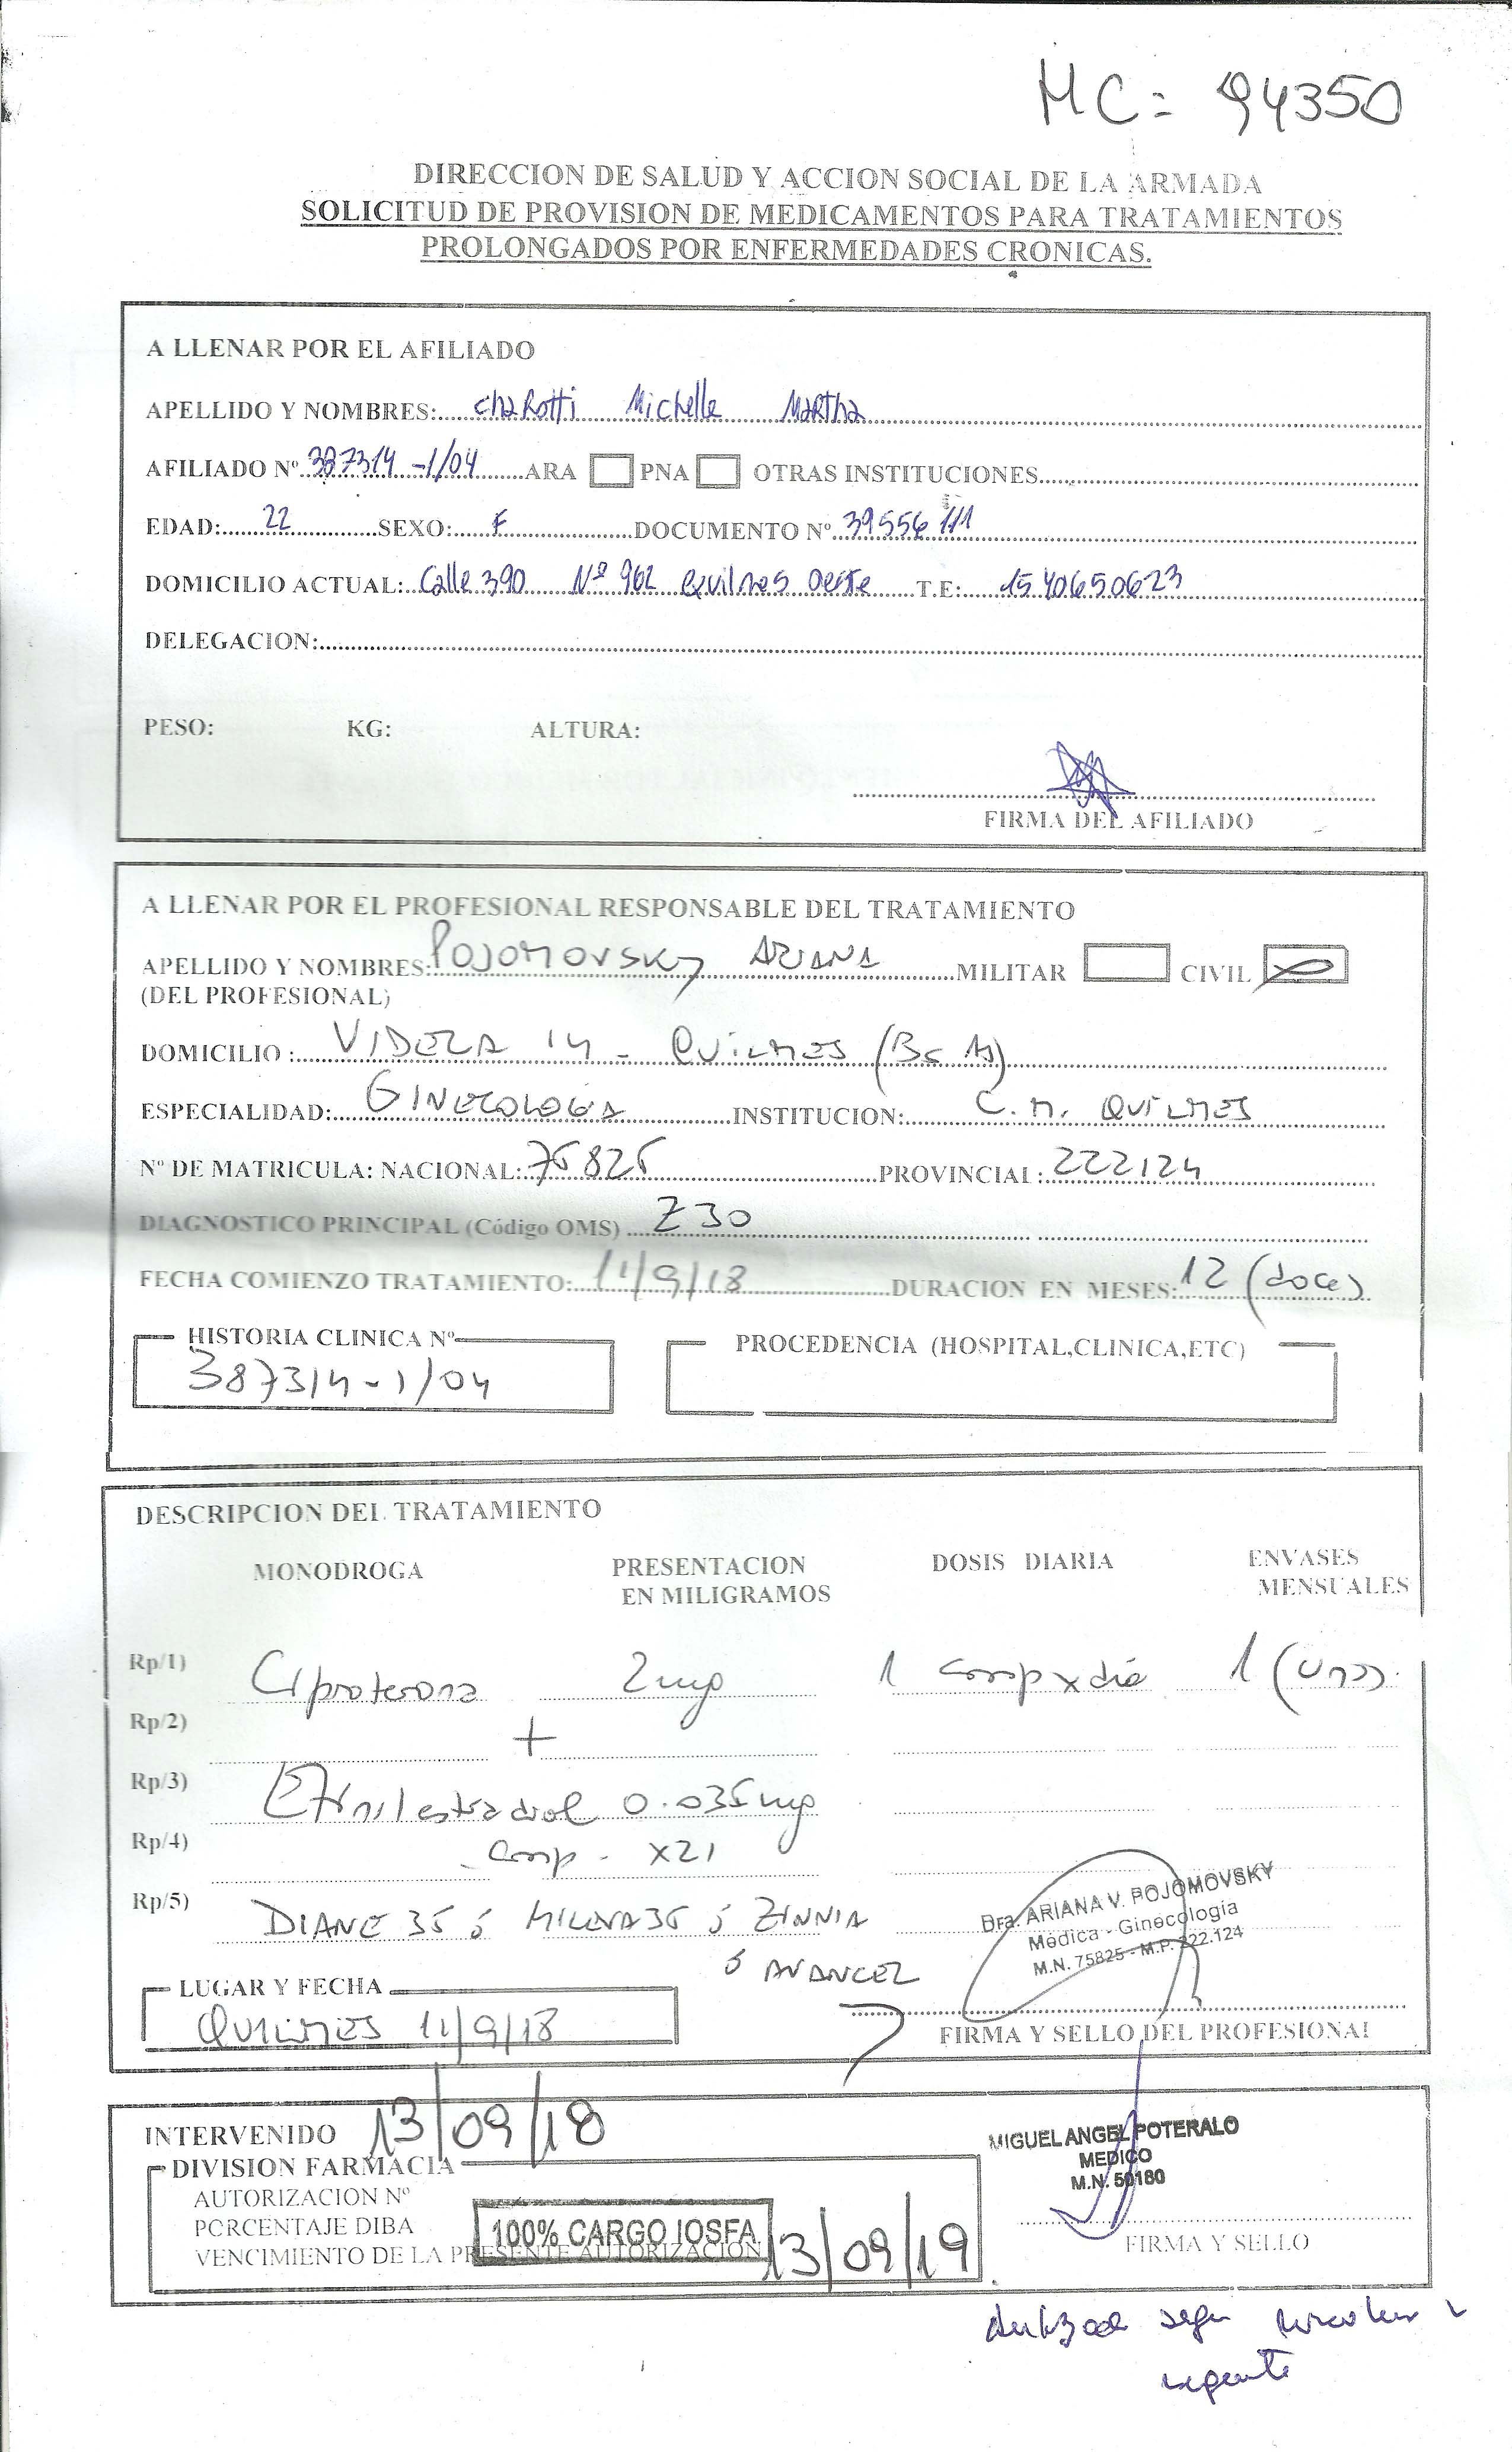 MC= 94350
DIRECCION DE SALUD Y ACCION SOCIAL DE LA ARMADA
SOLICITUD DE PROVISION DE MEDICAMENTOS PARA TRATAMIENTOS
PROLONGADOS POR ENFERMEDADES CRONICAS.
A LLENAR POR EL AFILIADO
APELLIDO Y NOMBRES: Charotti Michelle Martha
AFILIADO Nº 387314-1/04 ARA PNA OTRAS INSTITUCIONES
EDAD: 22 SEXO: F DOCUMENTO Nº 39556111
DOMICILIO ACTUAL: Calle 390 Nº 962 Quilmes oeste T.E: 1540650623
DELEGACION:
PESO: KG: ALTURA:
FIRMA DEL AFILIADO
A LLENAR POR EL PROFESIONAL RESPONSABLE DEL TRATAMIENTO
APELLIDO Y NOMBRES: POJOMOVSKY ARIANA MILITAR CIVIL
(DEL PROFESIONAL)
DOMICILIO: VIDELA 14 - QUILMES (Bs As)
ESPECIALIDAD: GINECOLOGIA INSTITUCION: C.M. QUILMES
Nº DE MATRICULA: NACIONAL: 75825 PROVINCIAL: 222124
DIAGNOSTICO PRINCIPAL (Código OMS) Z30
FECHA COMIENZO TRATAMIENTO: 11/9/18 DURACION EN MESES: 12 (doce)
HISTORIA CLINICA Nº PROCEDENCIA (HOSPITAL,CLINICA,ETC)
387314-1/04
DESCRIPCION DEL TRATAMIENTO
MONODROGA PRESENTACION EN MILIGRAMOS DOSIS DIARIA ENVASES MENSUALES
Rp/1) Ciproterona 2mg 1 comp x dia 1 (uno).
Rp/2) +
Rp/3) Etinilestradiol 0.035mg
Rp/4) Comp - x21
Rp/5) DIANE 35 ó MILEVA 35 ó ZINNIA
ó AVANCEL
Dra. ARIANA V. POJOMOVSKY
Médica - Ginecología
M.N. 75825 - M.P. 222.124
LUGAR Y FECHA
QUILMES 11/9/18
FIRMA Y SELLO DEL PROFESIONAL
INTERVENIDO 13/09/18
MIGUEL ANGEL POTERALO
MEDICO
M.N. 50180
DIVISION FARMACIA
AUTORIZACION Nº
PORCENTAJE DIBA 100% CARGO IOSFA
VENCIMIENTO DE LA PRESENTE AUTORIZACION 13/09/19
FIRMA Y SELLO